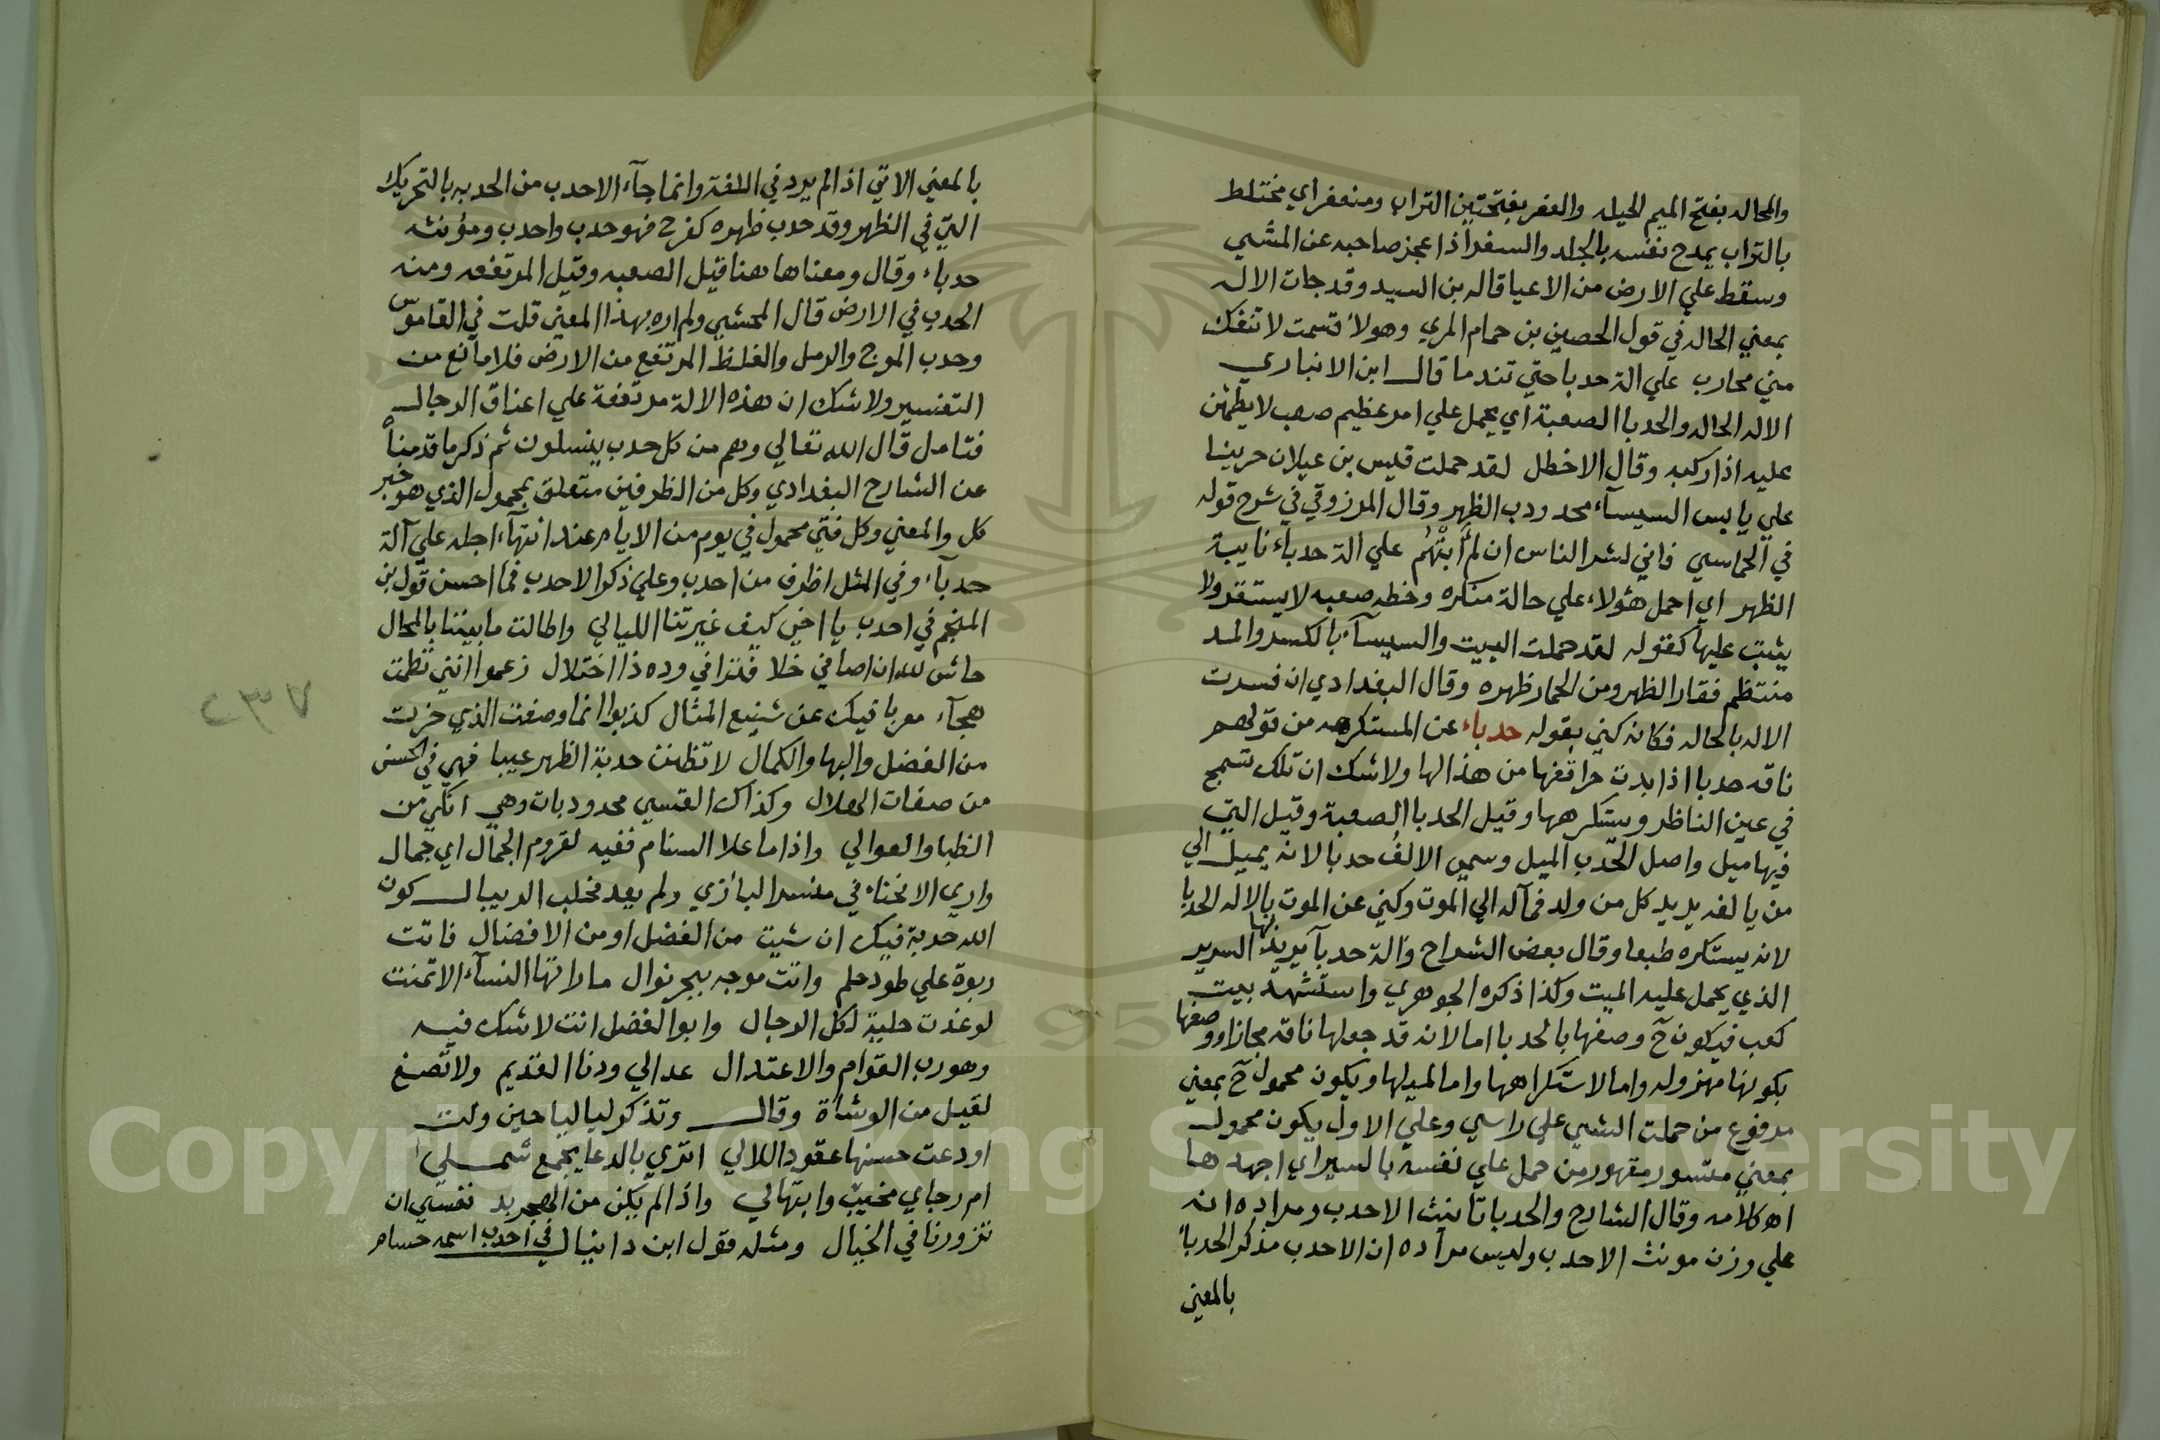 والمحاله بفتح الميم الحيله والعفر بفتحتين التراب ومنعفر اي مختلط
بالتراب يمدح نفسه بالجلد والسفر اذا عجز صاحبه عن المشي
وسقط علي الارض من الاعيا قاله بن السيد وقد جات الاله
بمعني الحاله في قول الحصين بن حمام المري وهولا قسمت لا تنفك
مني محارب علي الة حدبا حتي تندما قال ابن الانباري
الاله الحاله والحدبا الصعبة اي يحمل علي امر عظيم صعب لا يطمئن
عليه اذا ركبه وقال الاخطل لقد حملت قيس بن عيلان حربنا
علي يابس السيسآء محدودب الظهر وقال المرزوقي في شرح قوله
في الحماسي فاني لشر الناس ان لم أبتهم علي الة حدباء نابية
الظهر اي احمل هؤلاء علي حالة منكره وخطه صعبه لا يستقر ولا
يثبت عليها كقوله لقد حملت البيت والسيسآء بالكسر والمد
منتظم فقار الظهر ومن الحمار ظهره وقال البغدادي ان فسرت
الاله بالحاله فكانه كني بقوله حدباء عن المستكرهه من قولهم
ناقه حدبا اذا بدت حراقفها من هذالها ولا شك ان تلك تسمج
في عين الناظر ويستكرهها وقيل الحدبا الصعبة وقيل التي
فيها ميل واصل الحدب الميل وسمي الالف حدبا لانه يميل الي
من يالفه يريد كل من ولد فمآله الي الموت وكني عن الموت بالاله الحدبا
لانه يستكره طبعا وقال بعض الشراح وآلة حدبآ يريد بها السرير
الذي يحمل عليه الميت وكذا ذكره الجوهري واستشهد ببيت
كعب فيكون ح وصفها بالحدبا اما لانه قد جعلها ناقه مجازا ووصفها
بكونها مهزوله واما لاستكراهها واما لميلها ويكون محمول ح بمعني
مرفوع من حملت الشي علي راسي وعلي الاول يكون محمول
بمعني مقسور مقهور من حمل علي نفسه بالسير اي اجهدها
اه كلامه وقال الشارح والحدبا تانيث الاحدب ومراده انه
علي وزن مونث الاحدب وليس مراده ان الاحدب مذكر الحدبا
بالمعني
بالمعني الاتي اذ لم يرد في اللغة وانما جآء الاحدب من الحدبه بالتحريك
التي في الظهر وقد حدب ظهره كفرح فهو حدب واحدب ومؤنثه
حدباء وقال ومعناها هنا قيل الصعبه وقيل المرتفعه ومنه
الحدب في الارض قال المحشي ولم اره بهذا المعني قلت في القاموس
وحدب الموج والرمل والغلظ المرتفع من الارض فلا مانع من
التفسير ولا شك ان هذه الالة مرتفعة علي اعناق الرجال
فتامل قال الله تعالي وهم من كل حدب ينسلون ثم ذكر ما قدمناه
عن الشارح البغدادي وكل من الظرفين متعلق بمحمول الذي هو خبر
كل والمعني وكل فتي محمول في يوم من الايام عند انتهآء اجله علي آلة
حدبآء وفي المثل اظرف من احدب وعلي ذكر الاحدب فما احسن قول بن
المنجم في احدب يا اخي كيف غيرتنا الليالي واطالت ما بيننا بالمحال
حاش لله ان اصافي خلا فتراني وده ذا اختلال زعموا انني نظمت
هجآء معربا فيك عن شنيع المثال كذبوا انما وصفت الذي حزت
من الفضل والبها والكمال لا تظنن حدبة الظهر عيبا فهي في الحسن
من صفات الهلال وكذاك القسي محدودبات وهي انكي من
الظبا والعوالي واذا ما علا السنام ففيه لقروم الجمال اي جمال
واري الانحناء في منسر البازي ولم يعد مخلب الريبال كون
الله حدبة فيك ان شيت من الفضل او من الافضال فاتت
ربوة علي طود حلم واتت موجه ببحر نوال ما راتها النسآء الا تمنت
لو غدت حلية لكل الرجال وابو الفضل انت لا شك فيه
وهو رب القوام والاعتدال عد الي ودنا القديم ولا تصغ
لقيل من الوشاة وقال وتذكر لياليا حين ولت
اودعت حسنها عقود اللالي اتري بالدعا يجمع شملي
ام رجاي مخيب وابتهالي واذا لم يكن من الهجر بد نفسي ان
تزورنا في الخيال ومثله قول ابن دانيال في احدب اسمه حسام
٧٣٥
Copyright © King Saud University